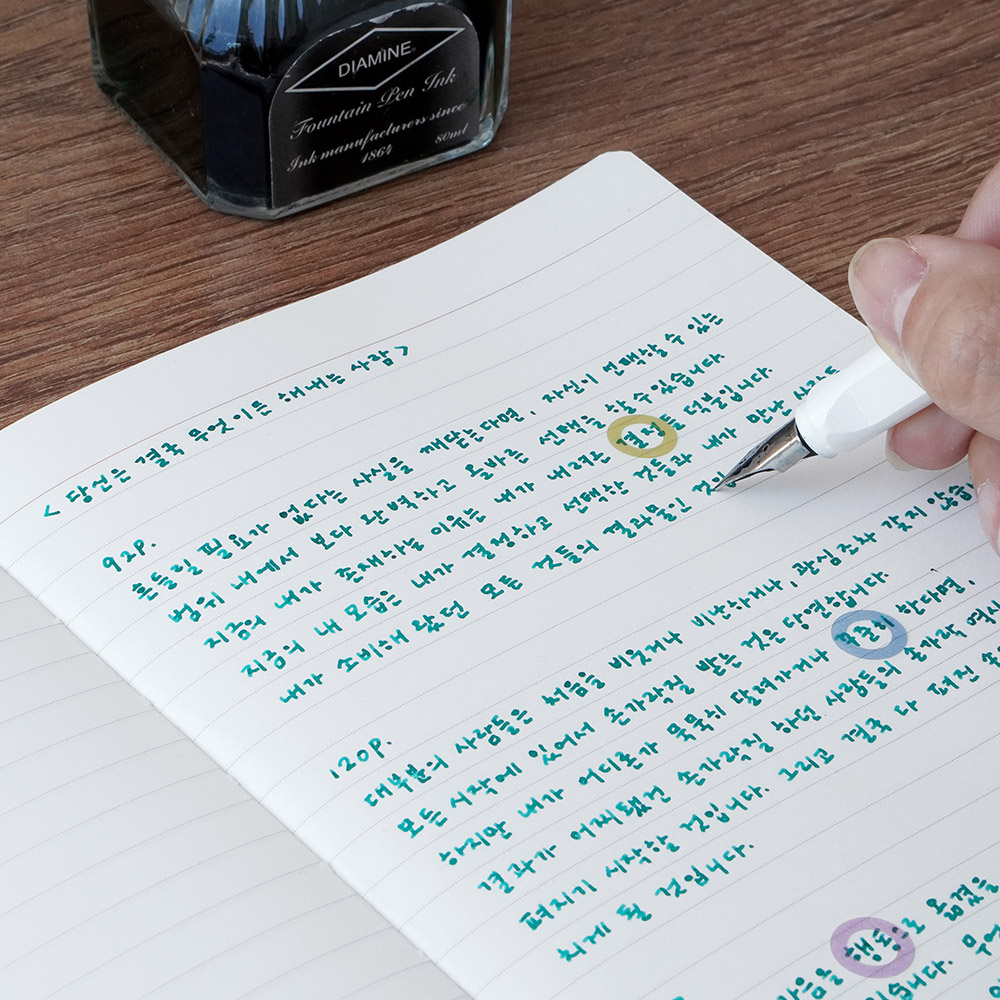 DIAMINE
Fountain Pen Ink
Ink manufacturers since
1864 80ml
< 당신은 결국 무엇이든 해내는 사람 >
92p.
흔들릴 필요가 없다는 사실을 깨닫는다면, 자신이 선택할 수 있는
범위 내에서 보다 완벽하고 올바른 선택을 할 수 있습니다.
지금의 내가 존재하는 이유는 내가 내려온 결정들 덕분입니다.
지금의 내 모습은 내가 결정하고 선택한 것들과 내가 만난
내가 소비해 왔던 모든 것들의 결과물인
120p.
대부분의 사람들은 처음을 비웃거나 비난하거나, 관심조차 갖지
모든 시작에 있어서 손가락질 받는 것은 당연합니다.
하지만 내가 어디론가 묵묵히 달려가거나 한다면,
결과가 어찌됐건 손가락질 하던 사람들의 손가락
펴지기 시작할 것입니다. 그리고 결국 다 펴진
치게 될 것입니다.
행동으로 옮겼을